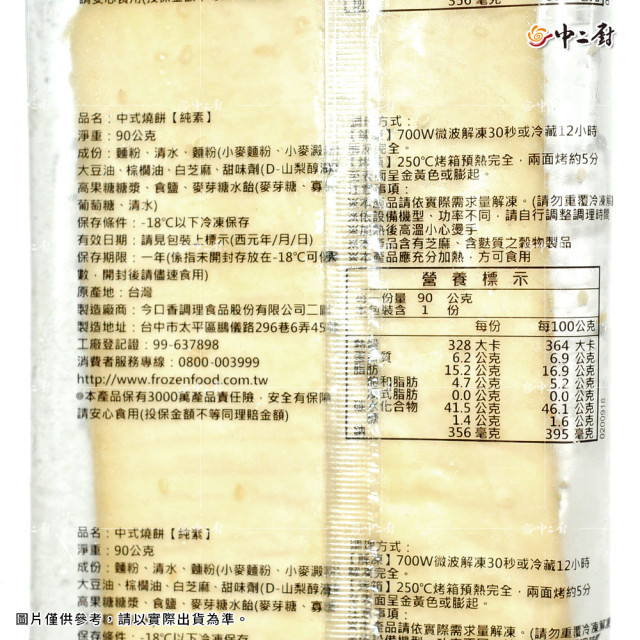 中二廚
356 毫克
請安心食用(投保金額不等同理賠金額)
品名：中式燒餅【純素】
淨重：90公克
成份：麵粉、清水、麵粉(小麥麵粉、小麥澱
大豆油、棕櫚油、白芝麻、甜味劑(D-山梨醇
高果糖糖漿、食鹽、麥芽糖水飴(麥芽糖、寡
葡萄糖、清水)
保存條件：-18℃以下冷凍保存
有效日期：請見包裝上標示(西元年/月/日)
保存期限：一年(係指未開封存放在-18℃可保
數，開封後請儘速食用)
原產地：台灣
製造廠商：今口香調理食品股份有限公司二廠
製造地址：台中市太平區鵬儀路296巷6弄45
工廠登記證：99-637898
消費者服務專線：0800-003999
http://www.frozenfood.com.tw
●本產品保有3000萬產品責任險，安全有保障
請安心食用(投保金額不等同理賠金額)
方式：
】700W微波解凍30秒或冷藏12小時
完全。
】250℃烤箱預熱完全，兩面烤約5分
面呈金黃色或膨起。
事項：
品請依實際需求量解凍。(請勿重覆冷凍
依設備機型、功率不同，請自行調整調理時間
熱後高溫小心燙手
產品含有芝麻、含麩質之穀物製品
產品應充分加熱，方可食用
營養標示
份量 90 公克
包裝含 1 份
每份 每100公克
328 大卡 364 大卡
質 6.2 公克 6.9 公克
脂肪 15.2 公克 16.9 公克
和脂肪 4.7 公克 5.2 公克
式脂肪 0.0 公克 0.0 公克
化合物 41.5 公克 46.1 公克
1.4 公克 1.6 公克
356 毫克 395 毫克
0200918
品名：中式燒餅【純素】
淨重：90公克
成份：麵粉、清水、麵粉(小麥麵粉、小麥澱
大豆油、棕櫚油、白芝麻、甜味劑(D-山梨醇
高果糖糖漿、食鹽、麥芽糖水飴(麥芽糖、寡
保存條件：-18℃以下冷凍保存
方式：
】700W微波解凍30秒或冷藏12小時
完全。
】250℃烤箱預熱完全，兩面烤約5分
面呈金黃色或膨起。
事項：
品請依實際需求量解凍。(請勿重覆冷凍
圖片僅供參考，請以實際出貨為準。